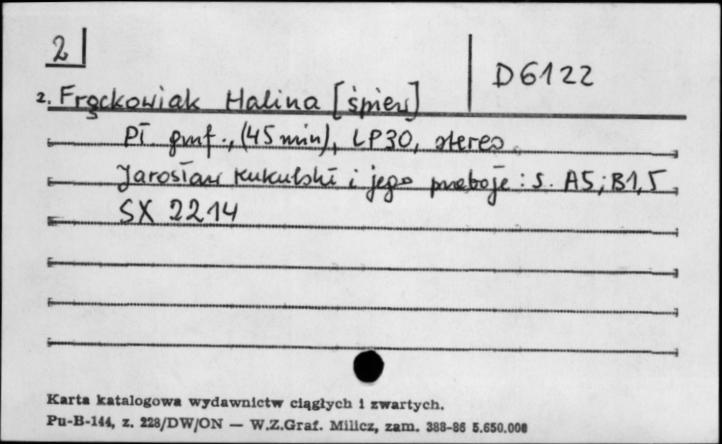 2
D6122
2. Frąckowiak Halina [śpiew]
Pł. gmf., (45 min), LP30, stereo.
Jarosław Kukulski i jego przeboje : s. A5; B1,5
SX 2214
Karta katalogowa wydawnictw ciągłych i zwartych.
Pu-B-144, z. 228/DW/ON — W.Z.Graf. Milicz, zam. 388-86 5.650.000